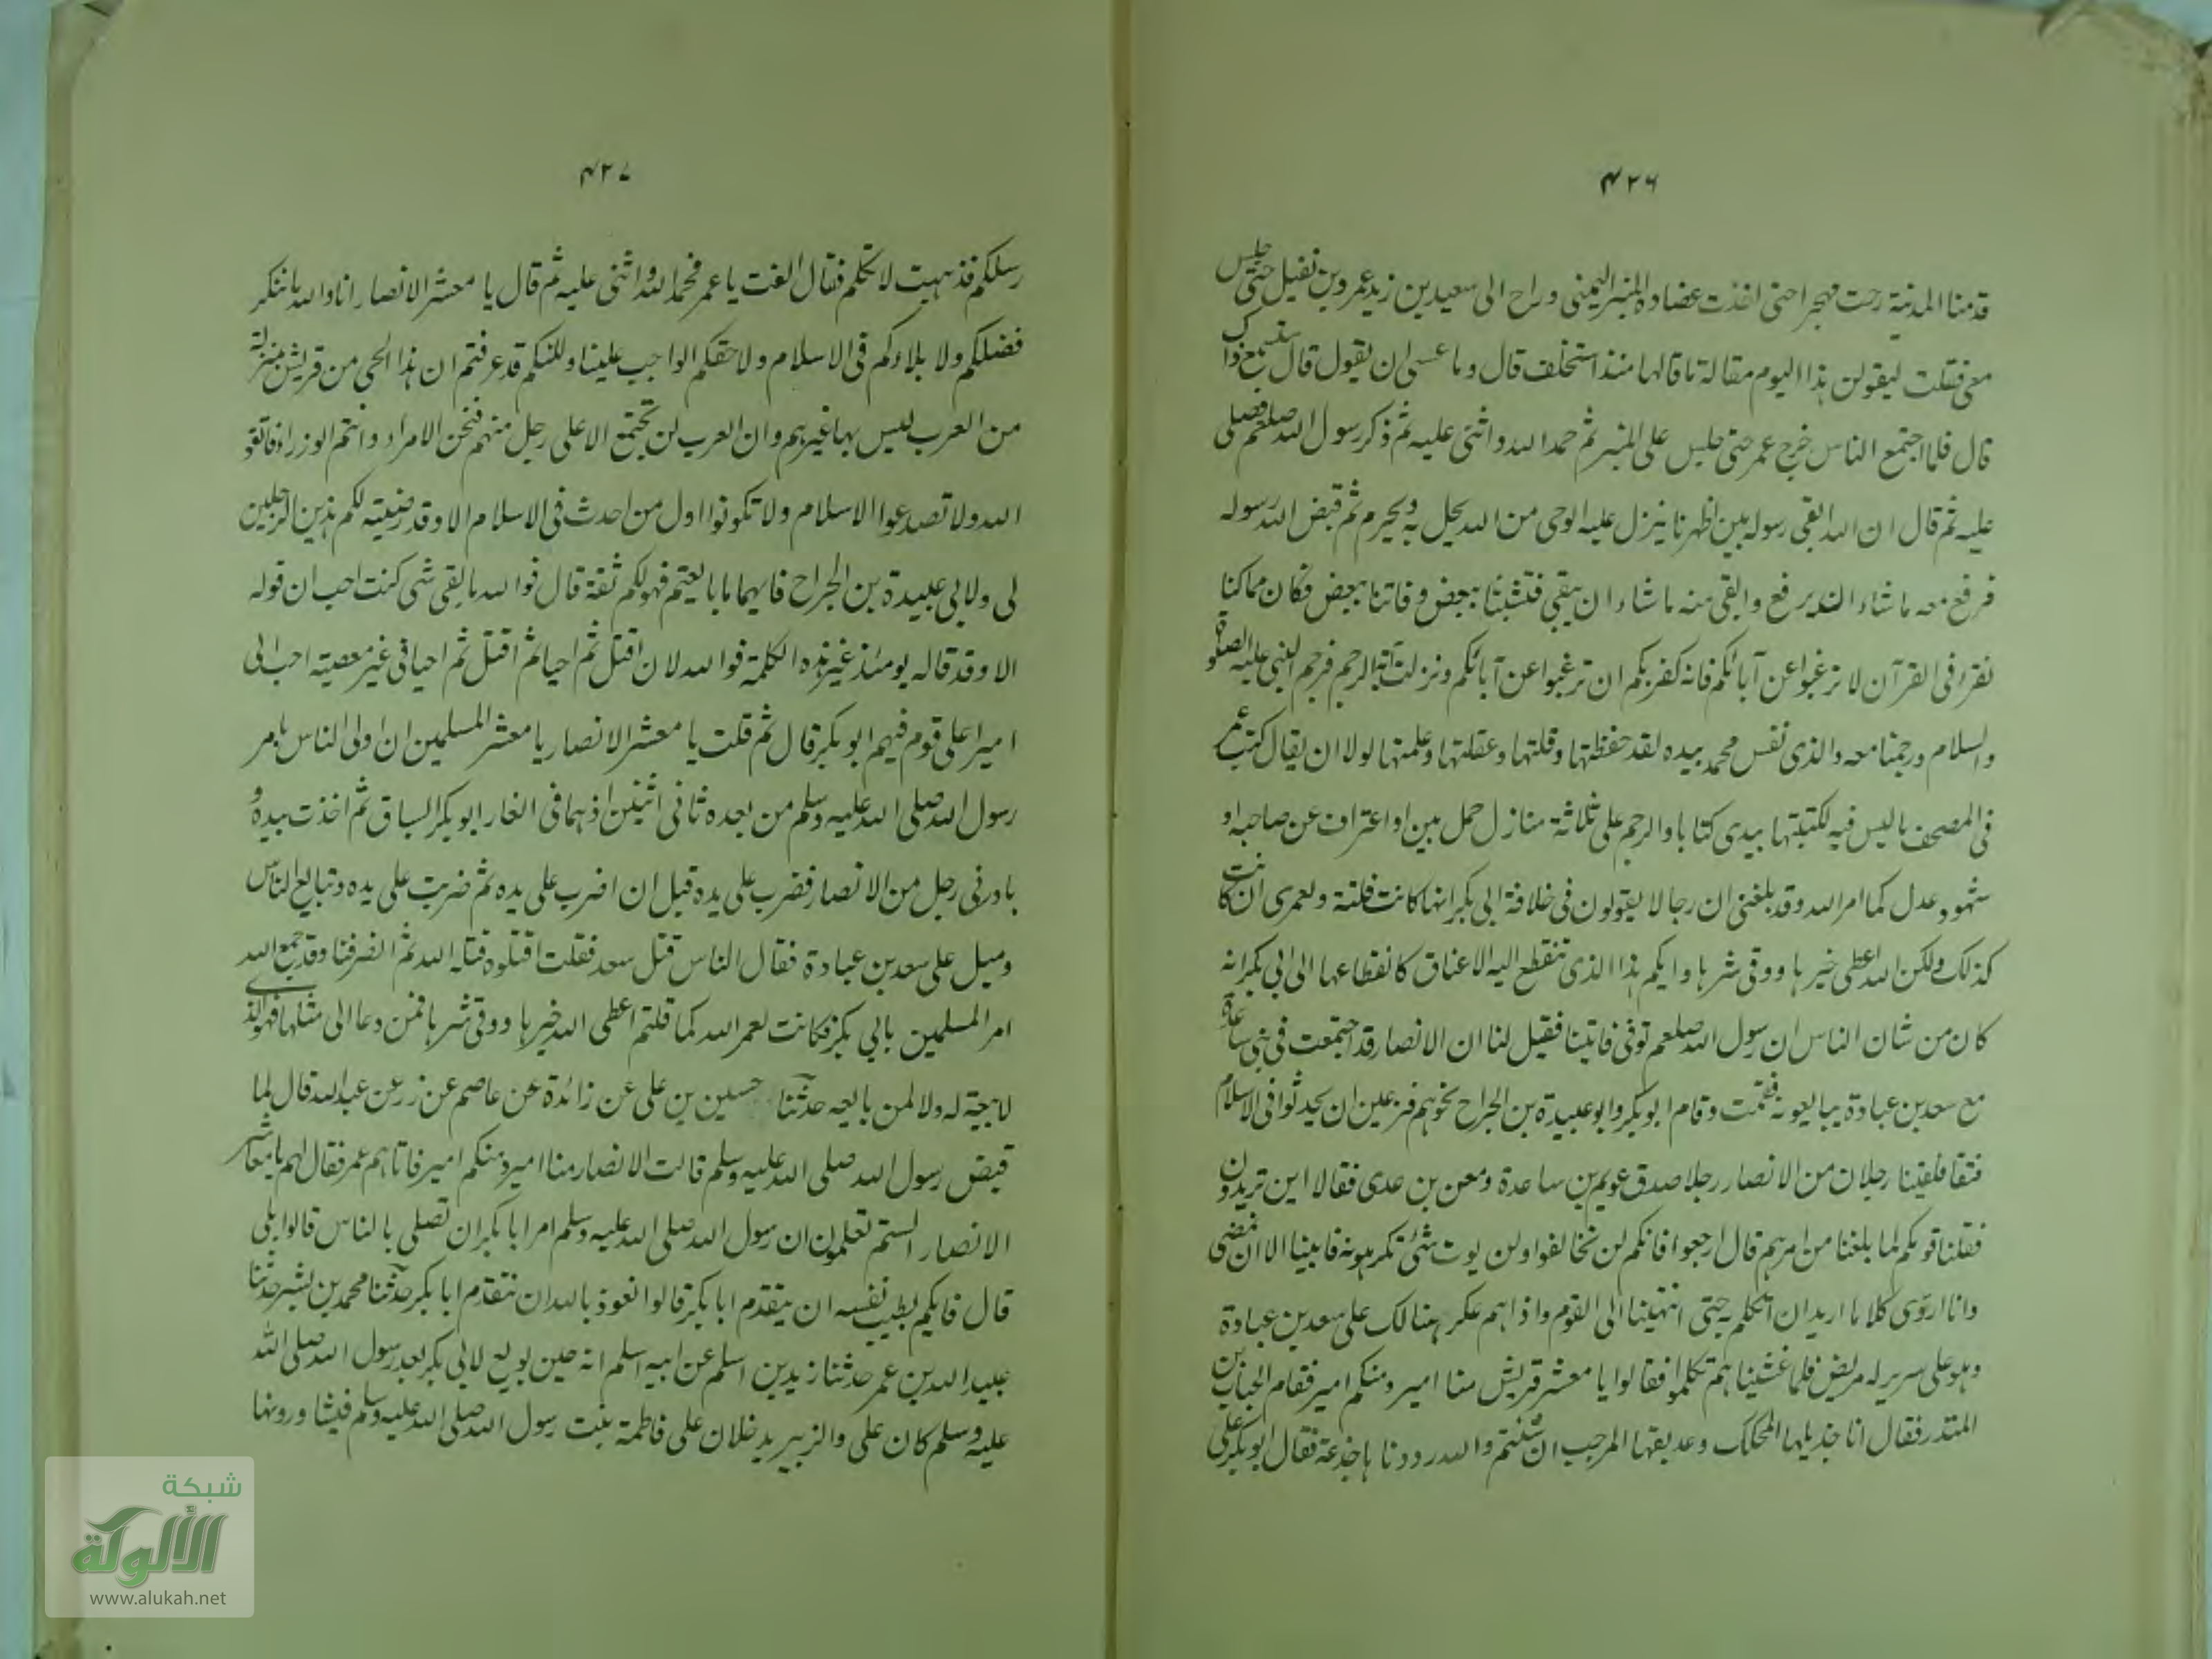 ۴۲۶
قدمنا المدنیة رحت مهجرا حتی اخذت عضادة المنبر الیمنی وراح الی سعید بن زید عمرو بن نفیل حتی جلس
معی فقلت لیقولن هذا الیوم مقالة ما قالها منذ استخلف قال وما عسی ان یقول قال ستسمع ذلک
قال فلما اجتمع الناس خرج عمر حتی جلس علی المنبر ثم حمد الله واثنی علیه ثم ذکر رسول الله صلعم فصلی
علیه ثم قال ان الله ابقی رسوله بین اظهرنا ینزل علیه الوحی من الله یحل به ویحرم ثم قبض الله رسوله
فرفع معه ما شاء الله یرفع وابقی منه ما شاء ان یبقی فتشبثنا ببعض وفاتنا بعض فکان مما کنا
نقرأ فی القرآن لا ترغبوا عن آبائکم فانه کفر بکم ان ترغبوا عن آبائکم ونزلت آیة الرجم فرجم النبی علیه الصلوة
والسلام ورجمنا معه والذی نفس محمد بیده لقد حفظتها وقلتها وعقلتها وعلمتها لولا ان یقال کتب عمر
فی المصحف ما لیس فیه لکتبتها بیدی کتابا والرجم علی ثلاثة منازل حمل بین او اعتراف عن صاحبه او
شهود عدل کما امر الله وقد بلغنی ان رجالا یقولون فی خلافة ابی بکر انها کانت فلتة ولعمری ان کانت
کذلک ولکن الله اعطی خیرها ووقی شرها وایکم هذا الذی تنقطع الیه الاعناق کانقطاعها الی ابی بکر انه
کان من شان الناس ان رسول الله صلعم توفی فاتینا فقیل لنا ان الانصار قد اجتمعت فی بنی ساعدة
مع سعد بن عبادة یبایعونه فقمت وقام ابو بکر وابو عبیدة بن الجراح نحوهم فزعین ان یحدثوا فی الاسلام
فتقا فلقینا رجلان من الانصار رجلا صدق عویم بن ساعدة ومعن بن عدی فقالا این تریدون
فقلنا قومکم لما بلغنا من امرهم قال ارجعوا فانکم لن تخالفوا ولن یوت شئ تکرهونه فابینا الا ان نمضی
وانا ارؤی کلاما ارید ان اتکلم به حتی انتهینا الی القوم واذا هم عکر هنالک علی سعد بن عبادة
وهو علی سریر له مریض فلما غشیناهم تکلموا فقالوا یا معشر قریش منا امیر ومنکم امیر فقام الحباب بن
المنذر فقال انا جذیلها المحکک وعذیقها المرجب ان شئتم والله رددناها جذعة فقال ابو بکر علی
۴۲۷
رسلکم فذهبت لاتکلم فقال انصت یا عمر فحمد الله واثنی علیه ثم قال یا معشر الانصار انا والله ما ننکر
فضلکم ولا بلاءکم فی الاسلام ولا حقکم الواجب علینا ولکنکم قد عرفتم ان هذا الحی من قریش بمنزلة
من العرب لیس بها غیرهم وان العرب لن تجتمع الا علی رجل منهم فنحن الامراء وانتم الوزراء فاتقو
الله ولا تصدعوا الاسلام ولا تکونوا اول من احدث فی الاسلام الا وقد رضیت لکم هذین الرجلین
لی ولابی عبیدة بن الجراح فایهما ما بایعتم فهو لکم ثقة قال فوالله ما بقی شی کنت احب ان قوله
الا وقد قاله یومئذ غیر هذه الکلمة فوالله لان اقتل ثم احیا ثم اقتل ثم احیا فی غیر معصیة احب الی
امیرا علی قوم فیهم ابو بکر قال ثم قلت یا معشر الانصار یا معشر المسلمین ان اولی الناس بامر
رسول الله صلی الله علیه وسلم من بعده ثانی اثنین اذ هما فی الغار ابو بکر السباق ثم اخذت بیده و
بادرنی رجل من الانصار فضرب علی یده قبل ان اضرب علی یده ثم ضربت علی یده وتبایع الناس
ومیل علی سعد بن عبادة فقال الناس قتل سعد فقلت اقتلوه قتله الله ثم انصرفنا وقد جمع الله
امر المسلمین بابی بکر فکانت لعمر الله کما قلتم اعطی الله خیرها ووقی شرها فمن دعا الی مثلها فهو الذی
لا بیعة له ولا لمن بایعه حدثنا حسین بن علی عن زائدة عن عاصم عن زر عن عبد الله قال لما
قبض رسول الله صلی الله علیه وسلم قالت الانصار منا امیر ومنکم امیر فاتاهم عمر فقال لهم یا معاشر
الانصار الستم تعلمون ان رسول الله صلی الله علیه وسلم امر ابا بکر ان تصلی بالناس قالوا بلی
قال فایکم یطیب نفسه ان یتقدم ابا بکر قالوا نعوذ بالله ان نتقدم ابا بکر حدثنا محمد بن بشر حدثنا
عبید الله بن عمر حدثنا زید بن اسلم عن ابیه اسلم انه حین بویع لابی بکر بعد رسول الله صلی الله
علیه وسلم کان علی والزبیر یدخلان علی فاطمة بنت رسول الله صلی الله علیه وسلم فیشاورونها
شبكة
الألوكة
www.alukah.net